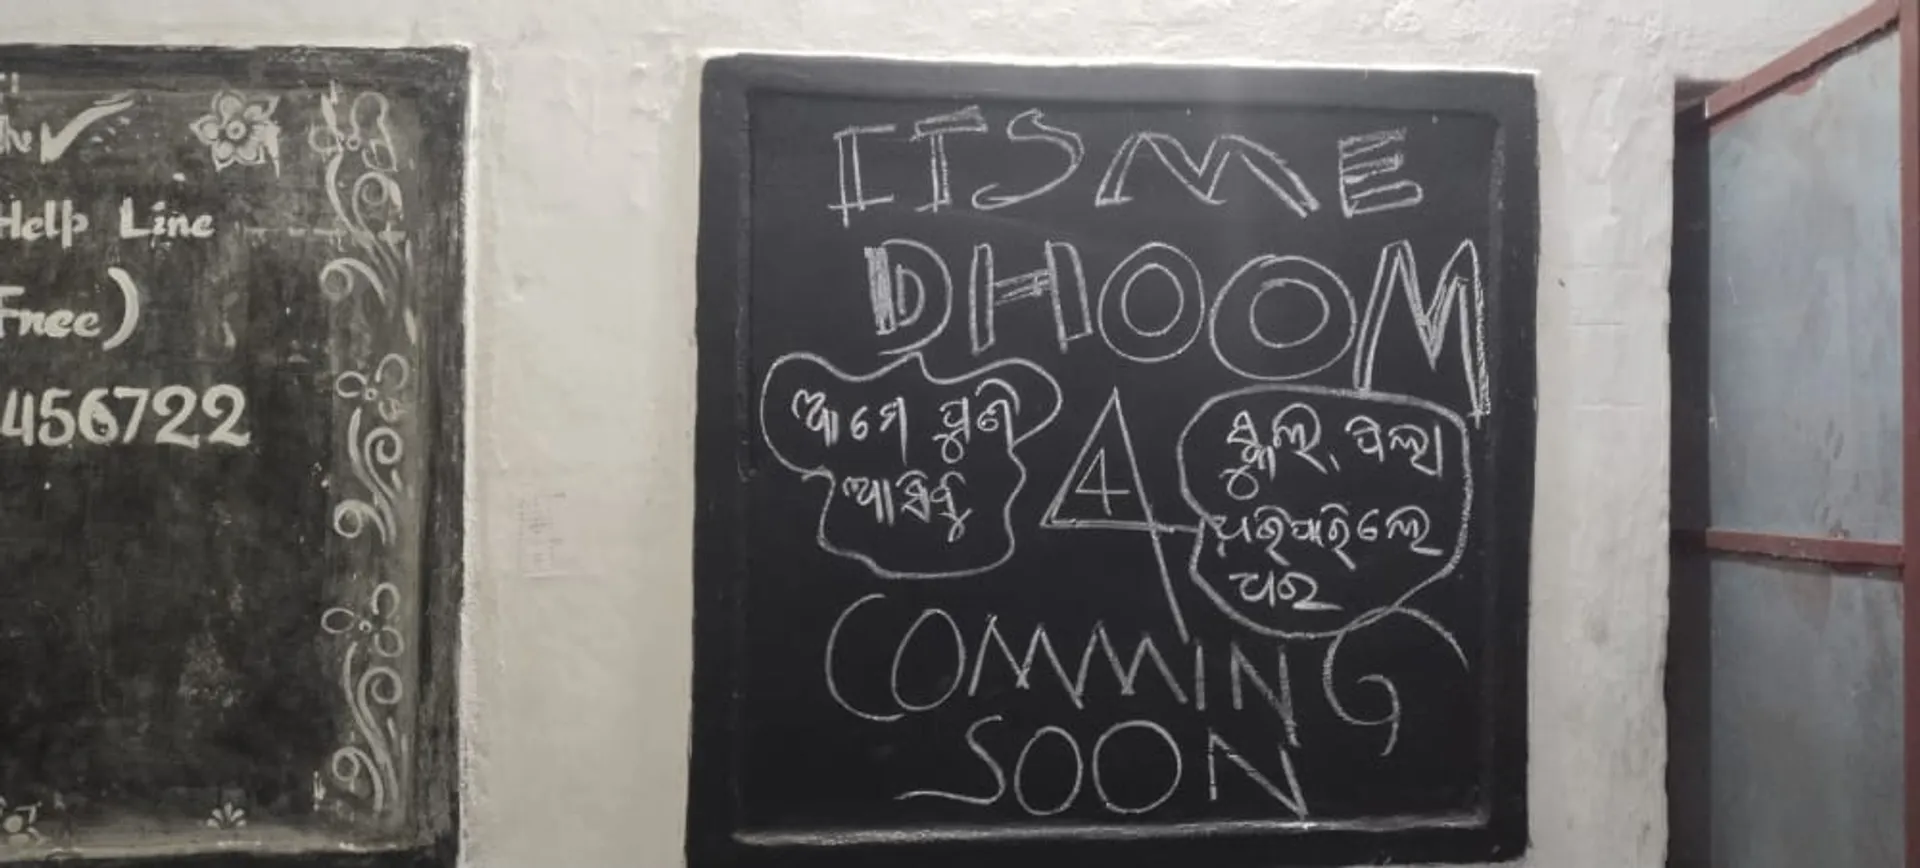 Help Line
Free)
456722
ITS ME
DHOOM
4
ଆମେ ପୁଣି
ଆସିବୁ
ସ୍କୁଲ, ପିଲା
ଧରିପାରିଲେ
ଧର
COMMING
SOON